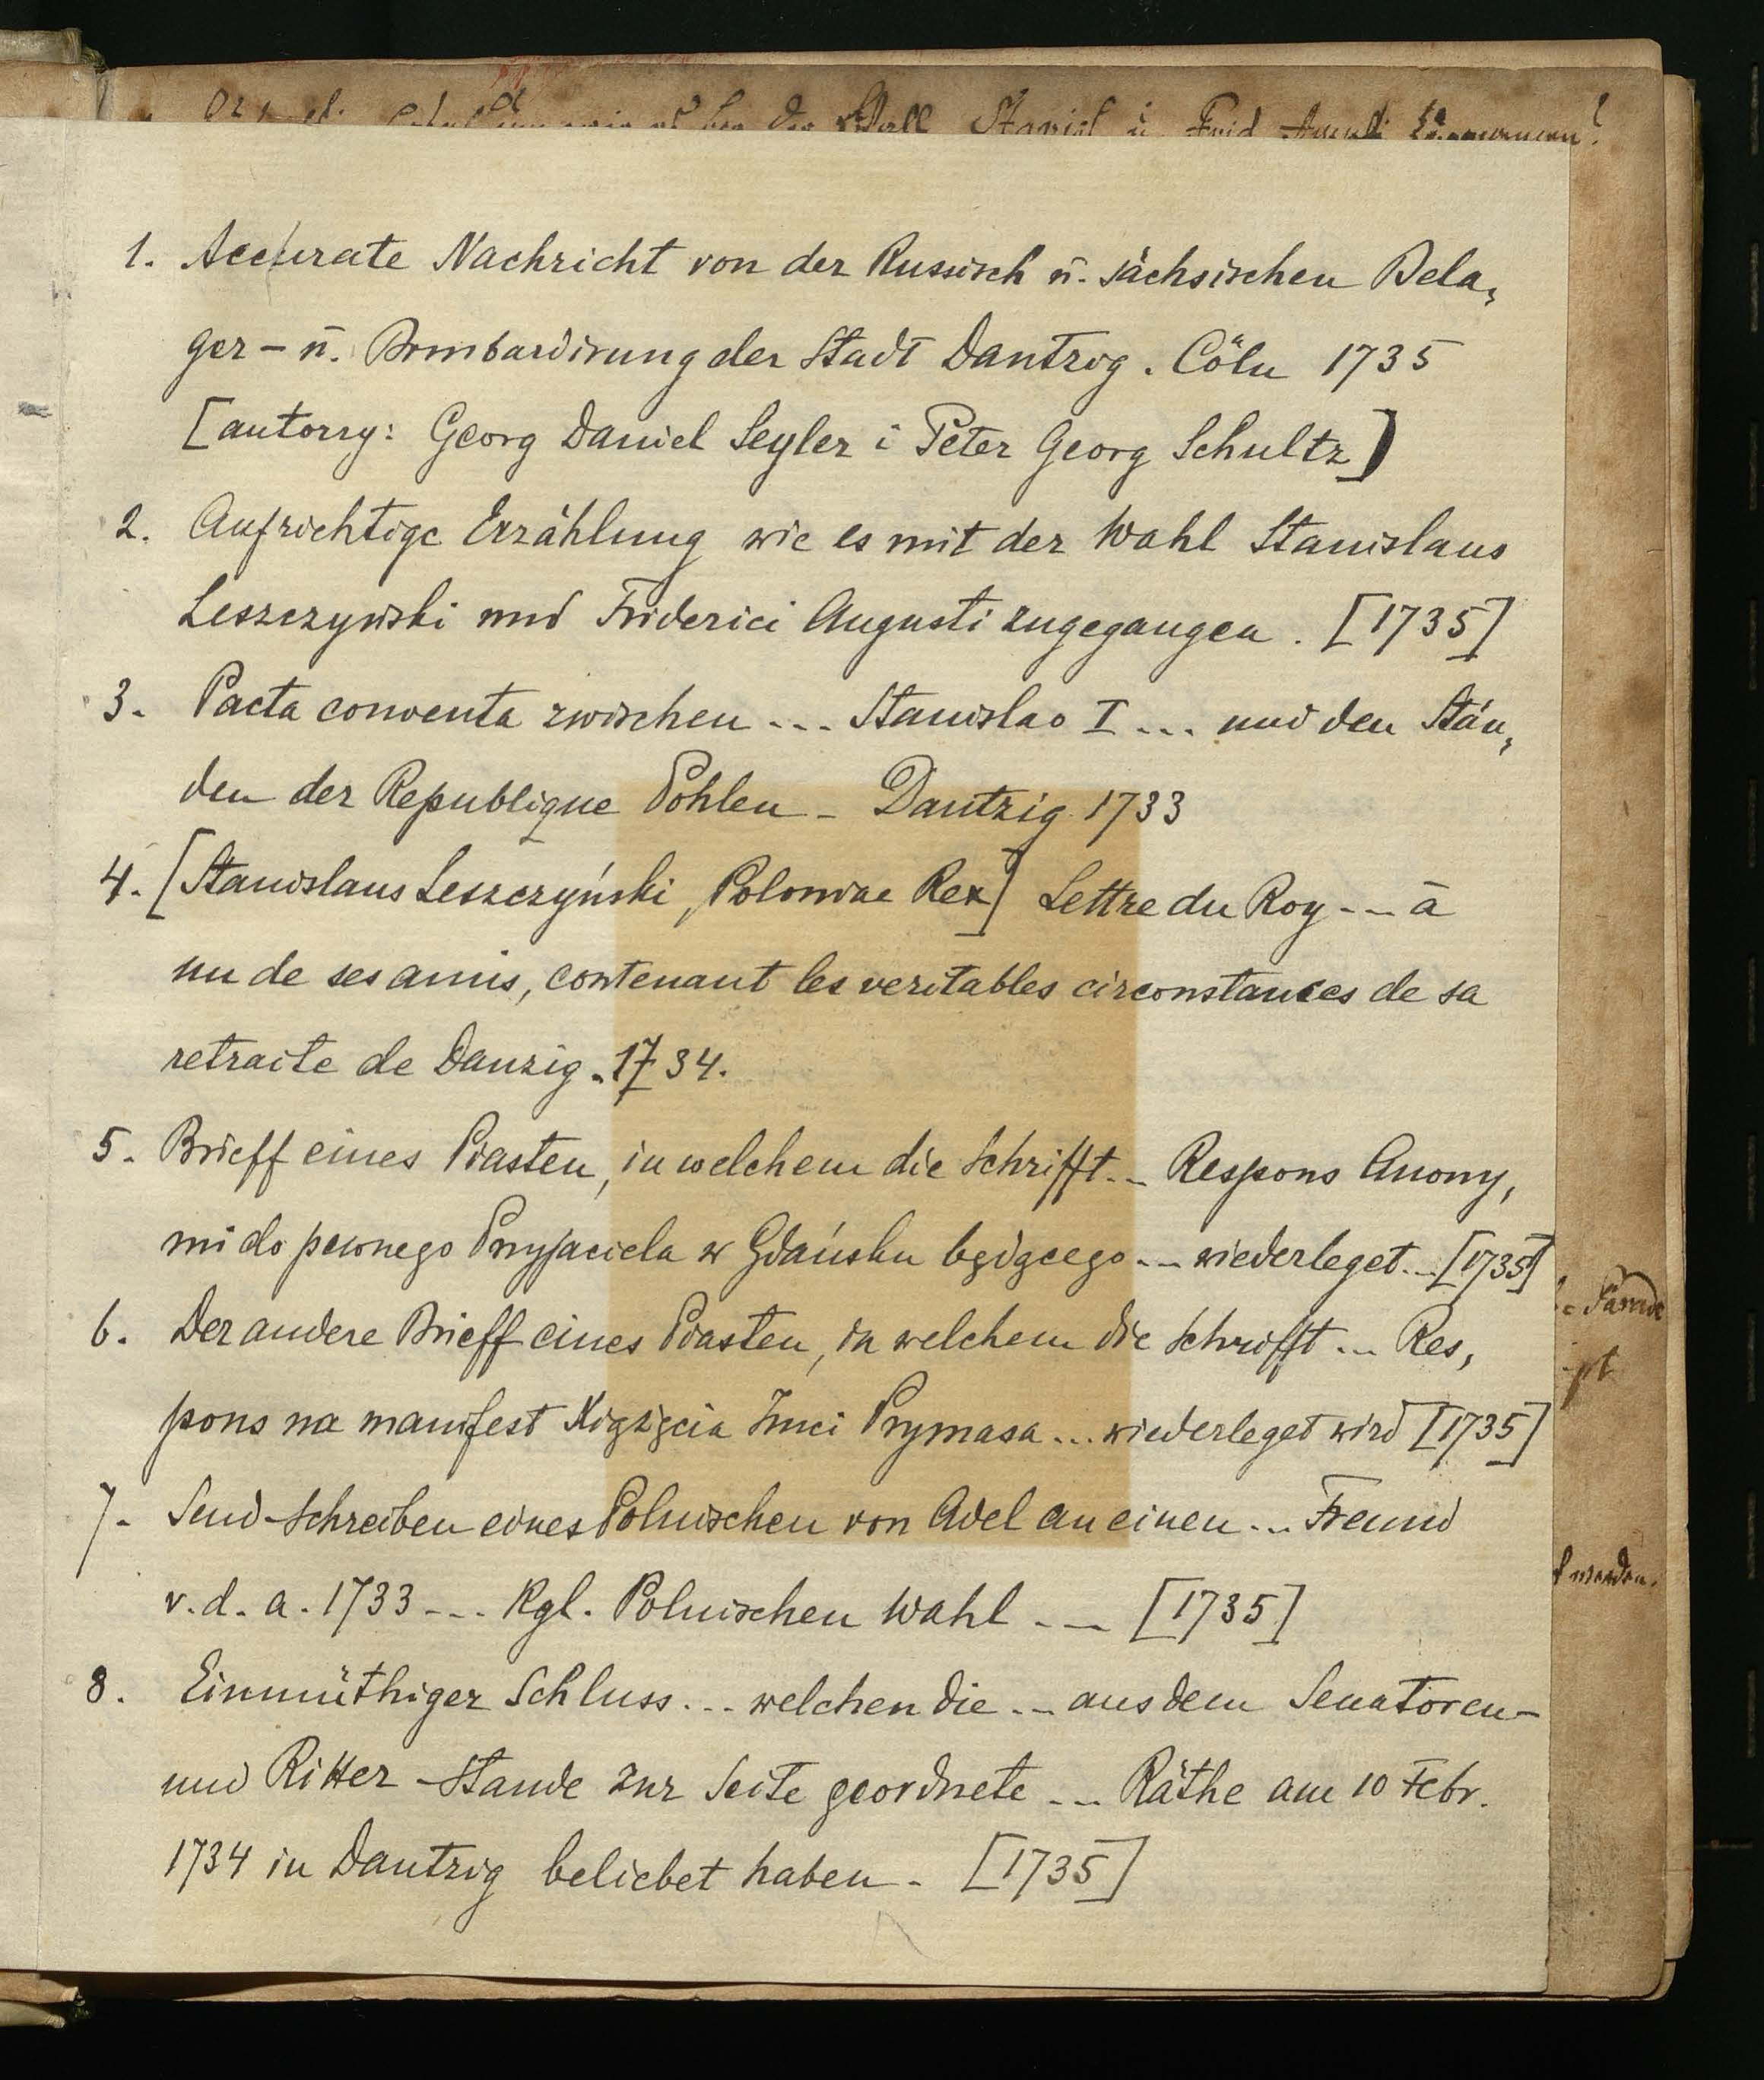 1. Accurate Nachricht von der Russisch ū. sächsischen Bela,
ger- ū. Bombardirung der Stadt Dantzig. Cöln 1735
[autorzy: Georg Daniel Seyler i Peter Georg Schultz]
2. Aufrichtige Erzählung wie es mit der Wahl Stanislaus
Leszczynski und Friderici Augusti zugegangen. [1735]
3. Pacta conventa zwischen ... Stanislao I ... und den Stän,
den der Republique Pohlen - Dantzig 1733
4. [Stanislaus Leszczyński, Poloniae Rex] Lettre du Roy ... à
un de ses amis, contenant les veritables circonstances de sa
retraite de Danzig. 1734.
5. Brieff eines Piasten, in welchem die Schrifft... Respons Anony,
mi do pewnego Przyjaciela w Gdańsku będącego ... wiederleget... [1735]
6. Der andere Brieff eines Piasten, in welchem die Schrifft ... Res,
pons na manifest Xiążęcia Imci Prymasa ... wiederleget wird [1735]
7. Send-Schreiben eines Polnischen von Adel an einen ... Freund
v. d. a. 1733 ... Kgl. Polnischen Wahl ... [1735]
8. Einmüthiger Schluss ... welchen die ... aus dem Senatoren-
und Ritter-Stande zur Seite geordnete ... Räthe am 10 Febr.
1734 in Dantzig beliebet haben. [1735]